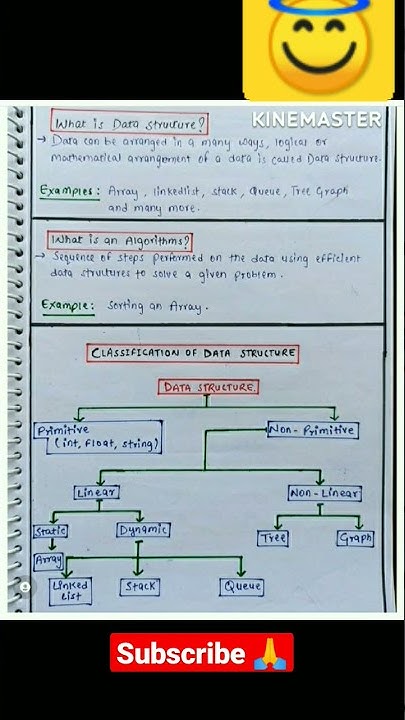 KINEMASTER
What is Data structure?
→ Data can be arranged in a many ways, logical or
mathematical arrangement of a data is called Data structure.
Examples: Array, linkedlist, stack, Queue, Tree Graph
and many more.
What is an Algorithms?
→ Sequence of steps performed on the data using efficient
data structures to solve a given problem.
Example: Sorting an Array.
CLASSIFICATION OF DATA STRUCTURE
DATA STRUCTURE
Primitive
(int, float, string)
Non-Primitive
Linear
Non-Linear
Static
Dynamic
Tree
Graph
Array
Linked
list
Stack
Queue
Subscribe 🙏